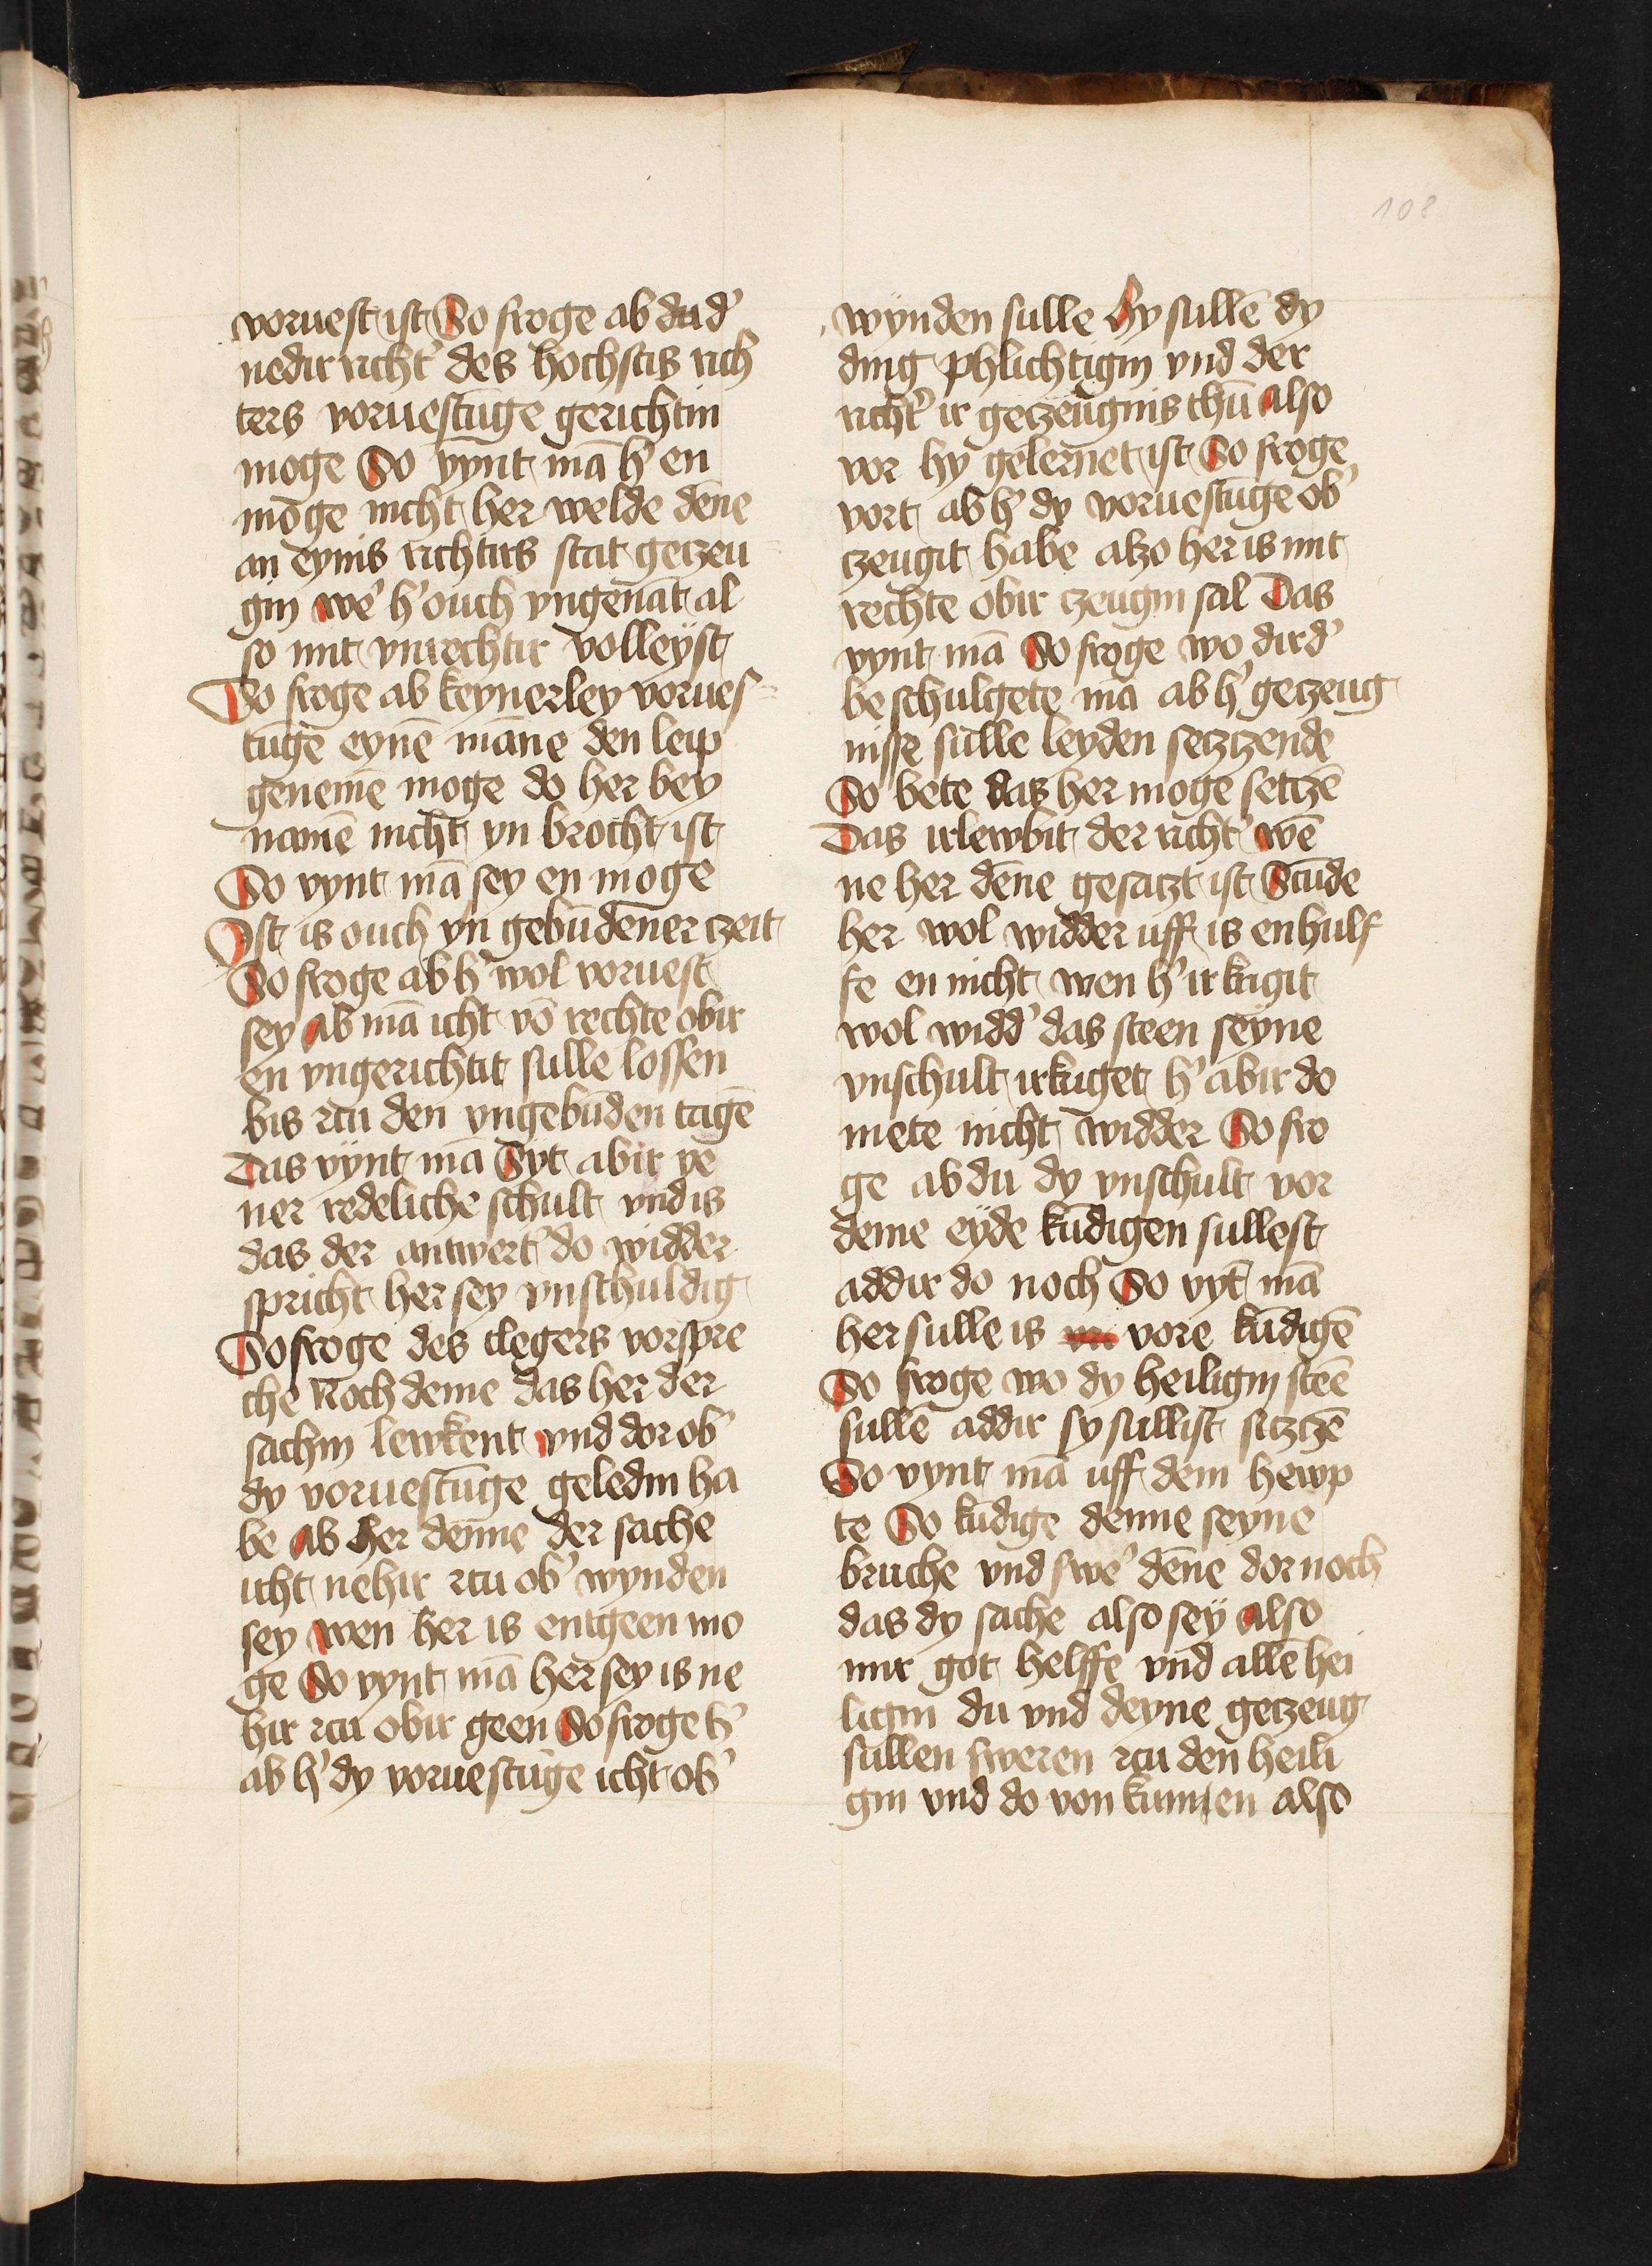 108
voruest ist So froge ab du d᾽
nedir richt᾽ des hochstis rich
ters voruestūge gerichtin
moge So vynt mā h᾽ en
moge nicht her welde dēne
an eynis richtirs stat geczeu
gin we᾽ h᾽ ouch vngenāt al
so mit vnrechtir volleyst
So froge ab keynerley vorues
tūge eynē māne den leip
genemē moge do her bey
namē nicht yn brocht ist
So vynt mā sey en moge
Ist is ouch yn gebūdener czeit
So froge ab h᾽ wol voruest
sey ab mā icht vō rechte obir
en vngerichtit sulle lossen
bis czu den vngebūden tagē
Das vynt mā Gyt abir ye
ner redeliche schult vnd is
das der antwert᾽ do widder
spricht her sey vnschuldig
So froge des clegers vorspre
che Noch deme das her der
sachin lewkent vnd dor ob᾽
dy voruestūge geledin ha
be ab her denne der sache
icht nehir czu ob᾽ wynden
sey wen her is entgeen mo
ge So vynt mā her sey is ne
hir czu obir geen So froge h᾽
ab h᾽ dy voruestūge icht ob᾽
wynden sulle Hy sullē dy
ding phlichtigin vnd der
richt᾽ ir geczeugnis thū also
vor hy gelernet ist So froge
vort ab h᾽ dy voruestūge ob᾽
czeugit habe alzo her is mit
rechte obir czeugin sal Das
vynt mā So froge wo dir d᾽
beschulgete mā ab h᾽ geczeug
nisse sulle leyden seczczende
So bete das her moge setczē
Das irlewbit der richt᾽ wē
ne her dēne gesatzt ist Stūde
her wol widder uff is en hulf
fe en nicht wen h᾽ irkrigit
wol widd᾽ das steen seyne
vnschult irkriget h᾽ abir do
mete nicht widder So fro
ge ab du dy vnschult vor
deme eyde kūdigen sullest
addir do noch So vyt mā
her sulle is vore kūdigē
So froge wo dy heiligin steē
sullē addir sy sullist siczczē
So vynt mā uff dem hewp
te So kūdige denne seyne
bruche vnd swe᾽ dēne dor noch
das dy sache also sey also
mir got helffe vnd allē hei
ligin du vnd deyne geczeug
sullen sweren czu den heili
gin vnd do von kumen also